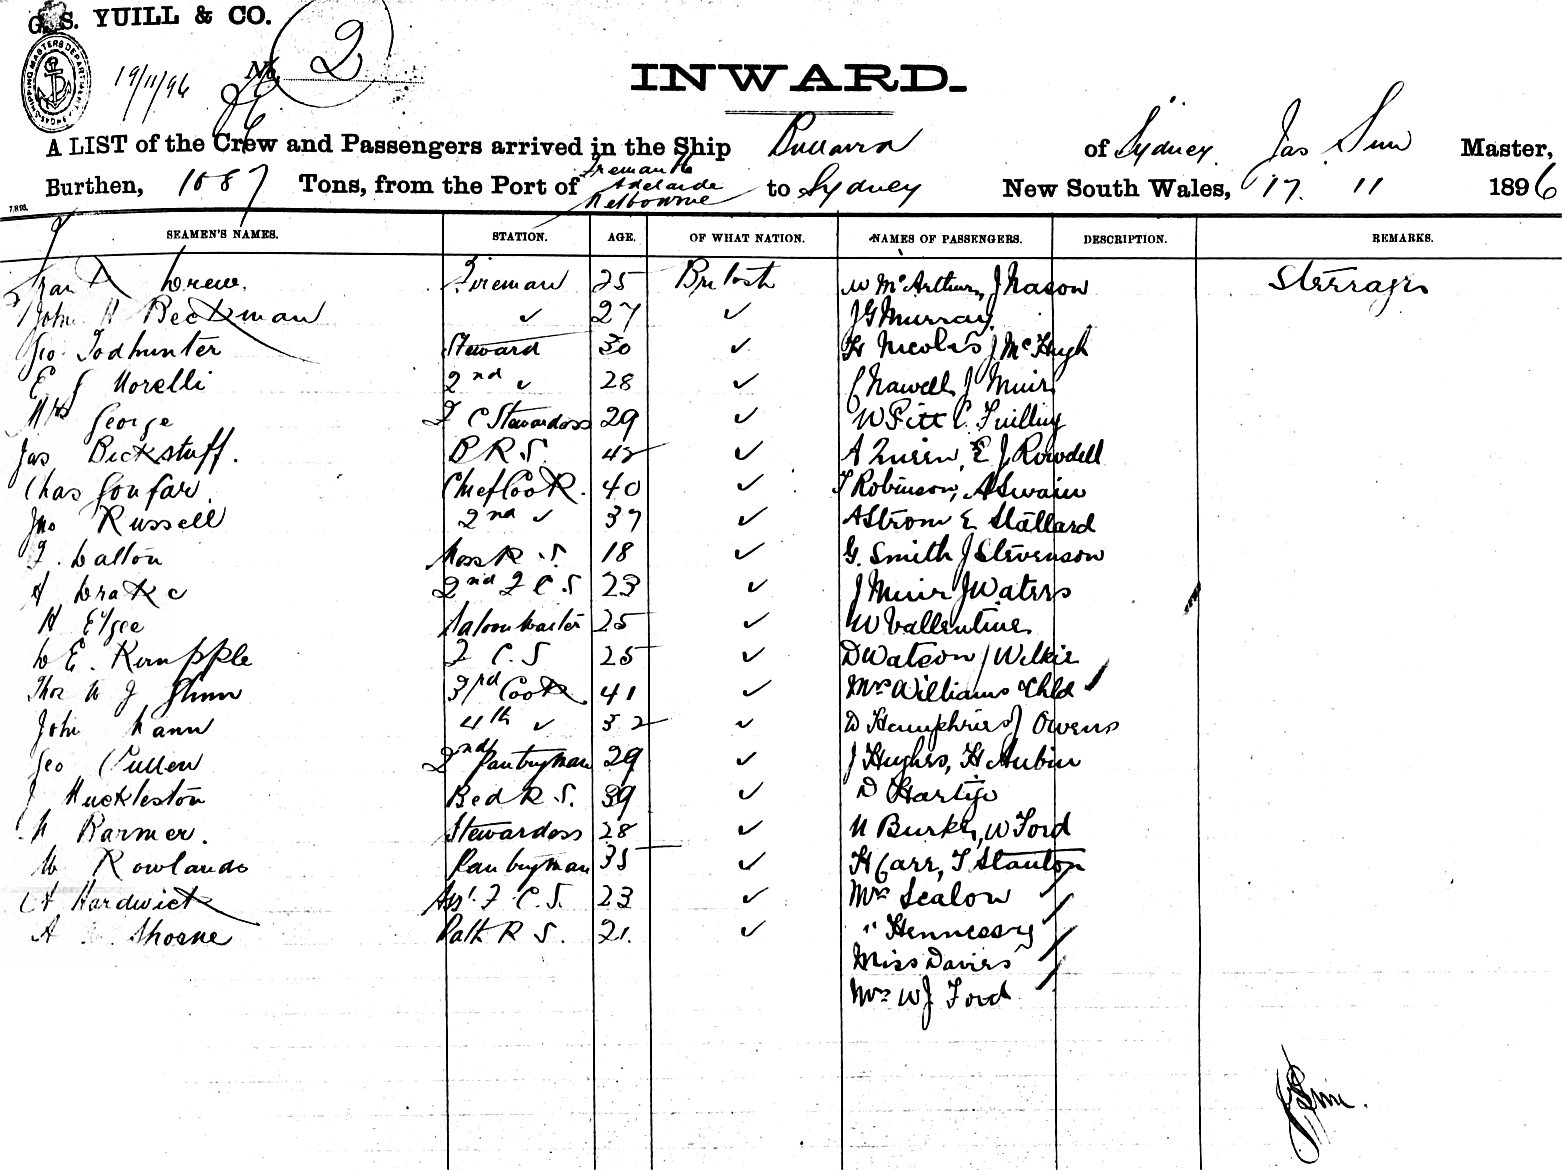 G. S. YUILL & CO.
SHIPPING MASTERS DEPARTMENT SYDNEY
19/11/96 No. 2
INWARD.
A LIST of the Crew and Passengers arrived in the Ship Bullarra of Sydney Jas Sim Master,
Burthen, 1087 Tons, from the Port of Fremantle Adelaide Melbourne to Sydney New South Wales, 17. 11 1896
SEAMEN'S NAMES. STATION. AGE. OF WHAT NATION. NAMES OF PASSENGERS. DESCRIPTION. REMARKS.
Frank Drew. Fireman 25 British W McArthur, J Nason Sterrage
John H Beckman ✓ 27 ✓ J G Murray
Geo Todhunter Steward 30 ✓ H Nicolas J McHugh
E J Morelli 2nd ✓ 28 ✓ Nawell J Muir
Mrs George F C Stewardess 29 ✓ W Pitt C
Jas Bickstaff. B R S. 42 ✓ A Quinn, E J Rowdell
Chas Gonfar. Chief Cook. 40 ✓ T Robinson, A Swain
Jno Russell 2nd ✓ 37 ✓ A Strom E Stallard
F. Dalton Mess R S. 18 ✓ G. Smith J Stevenson
A Drake 2nd F C S 23 ✓ J Muir J Waters
H Elgee Saloon Waiter 25 ✓ W Vallentine
D E. Kempple F C. S 25 ✓ D Watson J Wilkie
Thos W J Glinn 3rd Cook 41 ✓ Mrs Williams & Chld
John Mann 4th ✓ 32 ✓ D Humphries J Owens
Geo Cullen 2nd Pantryman 29 ✓ J Hughes, H Aubin
J Huckleston Bed R S. 39 ✓ D Hartijo
M Barmer. Stewardess 28 ✓ M Burke, W Ford
W Rowlands Pantryman 35 ✓ H Carr, T Stanton
A Hardwick Ass't F. C. S. 23 ✓ Mrs Scalon
A Thorne Bath R S. 21. ✓ " Hennessy
Miss Davies
Mrs W J Ford
J Sim.